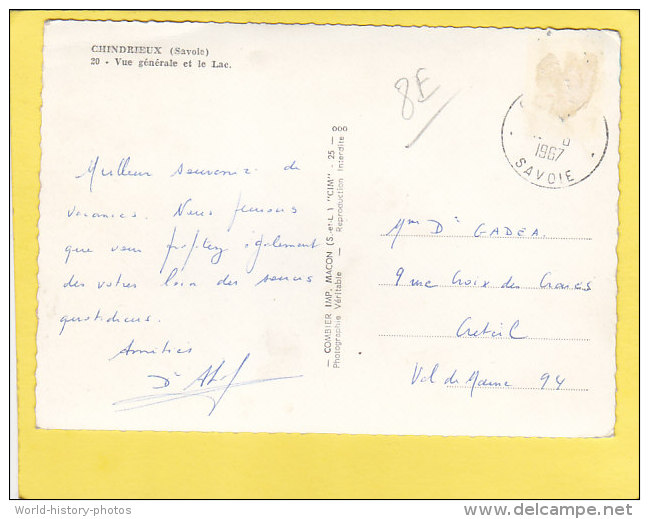 CHINDRIEUX (Savoie)
20 - Vue générale et le Lac.
8F
1967
SAVOIE
Meilleur souvenir de
vacances. Nous pensons
que vous profitez également
des votres loin des soucis
quotidiens.
Amitiés
Dr
— COMBIER IMP. MACON (S.-et-L.) "CIM" - 25 — 000
Photographie Véritable — Reproduction Interdite
Mme Dr GADEA
9 rue Croix des
Creteil
Val de Marne 94
World-history-photos
delcampe.net